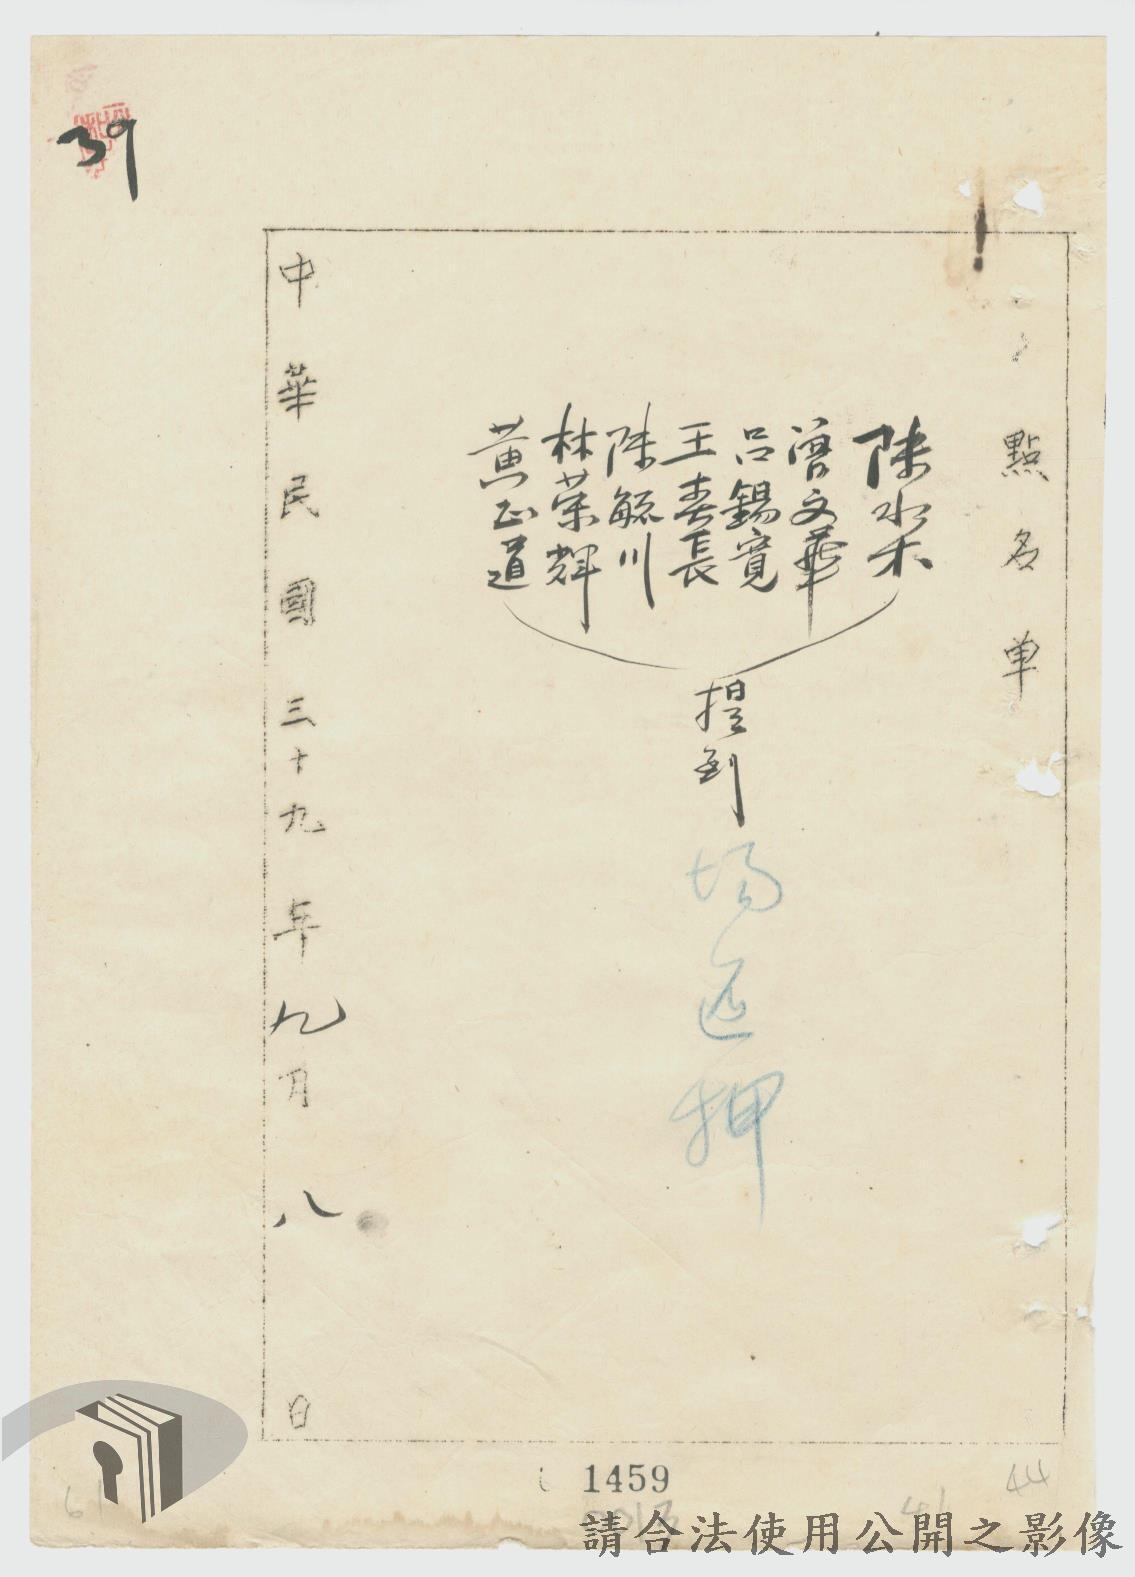 39
點名單
陳水木
曾文華
呂錫寬
王春長
陳毓川
林荣輝
黃正道
提到
場還押
中華民國三十九年九月八日
1459
44
請合法使用公開之影像